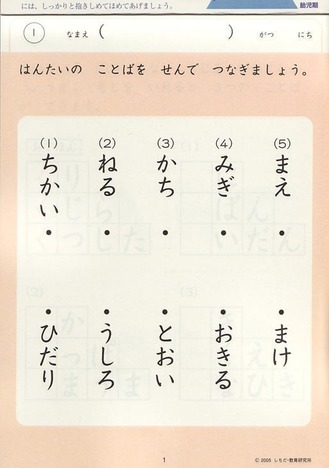 には、しっかりと抱きしめてほめてあげましょう。
胎児期
1 なまえ ( ) がつ にち
はんたいの ことばを せんで つなぎましょう。
(1) ちかい
(2) ねる
(3) かち
(4) みぎ
(5) まえ
ひだり
うしろ
とおい
おきる
まけ
1
© 2005 しちだ・教育研究所